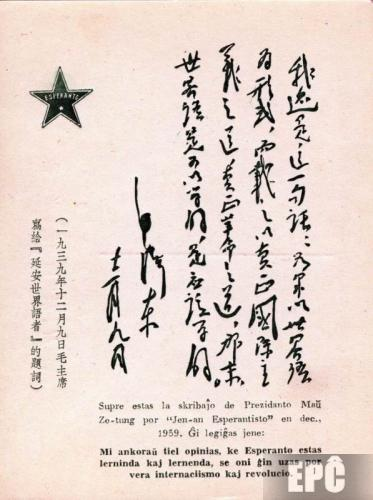 ESPERANTO
我還是這一句話：如果以世界語
為形式，而載之以真正國際主
義之道，真正革命之道，那末，
世界語是可以學的，是應該學的。
毛澤東
十二月九日
（一九三九年十二月九日毛主席
寫給『延安世界語者』的題詞）
Supre estas la skribaĵo de Prezidanto Maŭ
Ze-tung por "Jen-an Esperantisto" en dec.,
1959. Ĝi legiĝas jene:
Mi ankoraŭ tiel opinias, ke Esperanto estas
lerninda kaj lernenda, se oni ĝin uzas por
vera internaciismo kaj revolucio.
EPĈ